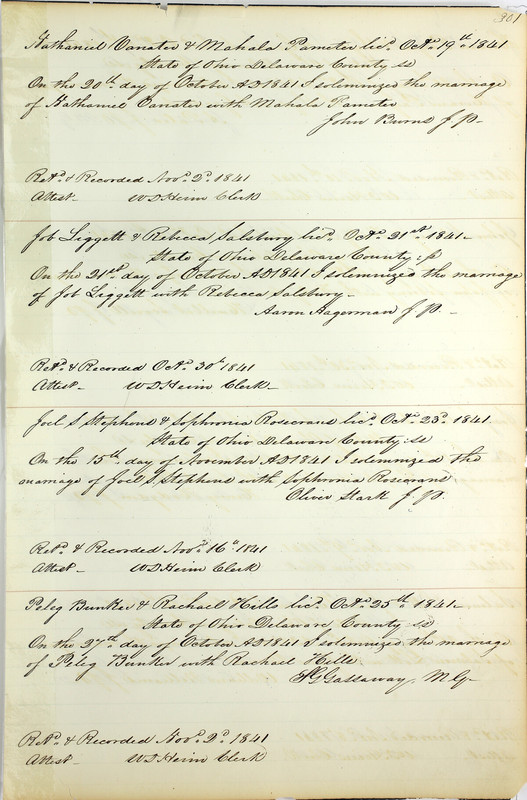 301
Nathaniel Vanater & Mahala Pamiter lics. Octr. 19th 1841
State of Ohio Delaware County ss
On the 20th day of October AD 1841 I solemnized the marriage
of Nathaniel Vanater with Mahala Pamiter
John Burns J P-
Retd. & Recorded Novr. 2d. 1841
Attest- W D Heim Clerk
Job Liggett & Rebecca Salsbury lics. Octr. 21st 1841-
State of Ohio Delaware County ss
On the 21st day of October AD 1841 I solemnized the marriage
of Job Liggett with Rebecca Salsbury-
Aaron Hagerman J P. -
Retd. & Recorded Octr. 30th 1841
Attest- W D Heim Clerk-
Joel S Stephens & Sophronia Rosecrans lics. Octr. 23d. 1841.
State of Ohio Delaware County ss
On the 15th day of November AD 1841 I solemnized the
marriage of Joel S Stephens with Sophronia Rosecrans
Oliver Stark J. P.
Retd. & Recorded Novr. 16th 1841
Attest- W D Heim Clerk
Peleg Bunker & Rachael Hills lics. Octr. 25th. 1841-
State of Ohio Delaware County ss
On the 27th day of October AD 1841 I solemnized the marriage
of Peleg Bunker with Rachael Hills.
Gallaway. M G-
Retd. & Recorded Novr. 2d. 1841
Attest- W D Heim Clerk